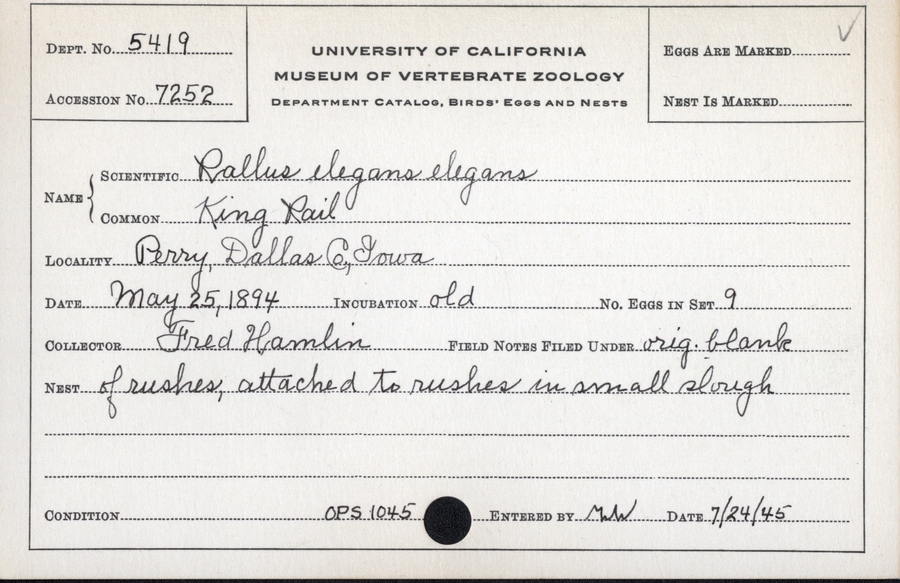 DEPT. NO. 5419
ACCESSION NO. 7252
UNIVERSITY OF CALIFORNIA
MUSEUM OF VERTEBRATE ZOOLOGY
DEPARTMENT CATALOG, BIRDS' EGGS AND NESTS
EGGS ARE MARKED ✓
NEST IS MARKED
NAME
SCIENTIFIC Rallus elegans elegans
COMMON King Rail
LOCALITY Perry, Dallas Co, Iowa
DATE May 25, 1894 INCUBATION old NO. EGGS IN SET 9
COLLECTOR Fred Hamlin FIELD NOTES FILED UNDER orig. blank
NEST of rushes, attached to rushes in small slough
CONDITION OPS 1045 ENTERED BY DATE 7/24/45